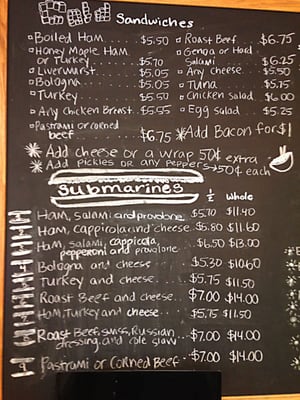 Sandwiches
Boiled Ham $5.50
Honey Maple Ham
or Turkey $5.70
Liverwurst $5.05
Bologna $5.05
Turkey $5.50
Any Chicken Breast $5.55
Pastrami or corned
beef $6.75
Roast Beef $6.75
Genoa or Hard
Salami $6.25
Any Cheese $5.50
Tuna $5.75
Chicken Salad $6.00
Egg Salad $5.25
Add Bacon for $1
Add cheese or a wrap 50¢ extra
Add pickles or any peppers 50¢ each
Submarines ½ whole
Ham, salami and provolone $5.70 $11.40
Ham, cappicola and cheese $5.80 $11.60
Ham, salami, cappicola,
pepperoni and provolone $6.50 $13.00
Bologna and cheese $5.30 $10.60
Turkey and cheese $5.75 $11.50
Roast Beef and cheese $7.00 $14.00
Ham, Turkey and cheese $5.75 $11.50
Roast Beef, swiss, Russian
dressing, and cole slaw $7.00 $14.00
Pastrami or Corned Beef $7.00 $14.00